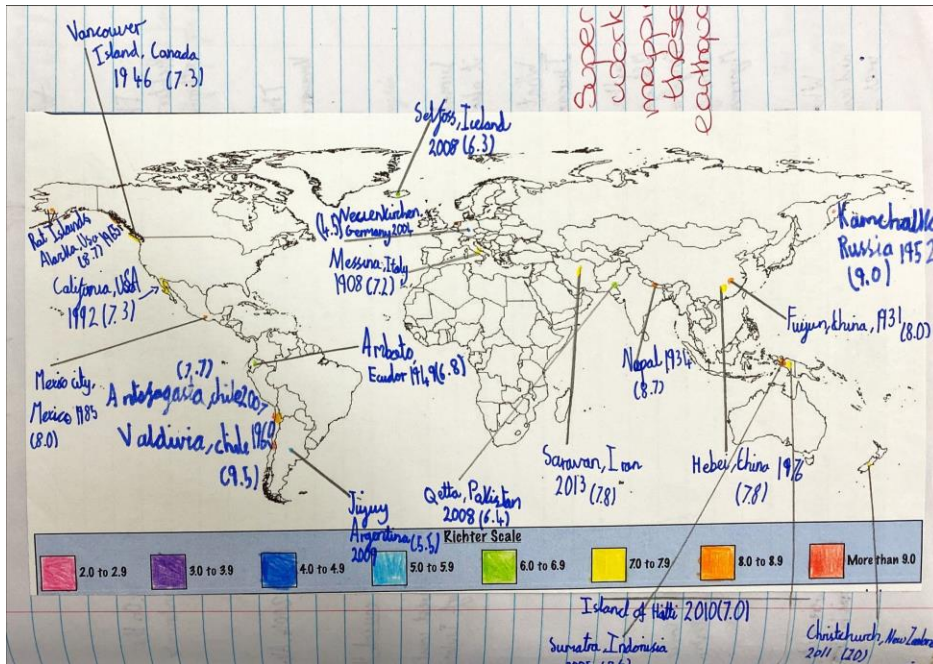 Vancouver
Island, Canada
1946 (7.3)
Super
work
mappi
these
earthqua
Selfoss, Iceland
2008 (6.3)
Rat Islands
Alaska, Usa 1965
(8.7)
(4.5) Neuenkirchen,
Germany 2004
Messina, Italy
1908 (7.2)
Kamchatk
Russia 1952
(9.0)
California, USA
1992 (7.3)
Fuijun, China, 1931
(8.0)
Mexico city,
Mexico 1985
(8.0)
Ambato,
Ecuador 1949 (6.8)
Nepal 1934
(8.7)
(7.7)
Antofagasta, chile 2007
Valdivia, chile 1960
(9.5)
Saravan, Iran
2013 (7.8)
Hebei, China 1976
(7.8)
Qetta, Pakistan
2008 (6.4)
Jujuy
Argentina (5.5)
2009
Richter Scale
2.0 to 2.9
3.0 to 3.9
4.0 to 4.9
5.0 to 5.9
6.0 to 6.9
7.0 to 7.9
8.0 to 8.9
More than 9.0
Island of Haiti 2010 (7.0)
Sumatra, Indonisia
Christchurch, New Zealan
2011 (7.0)